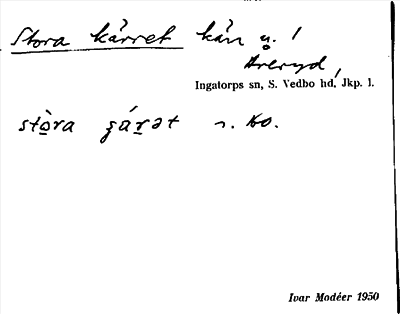 Stora kärret kän u. /
Areryd,
Ingatorps sn, S. Vedbo hd, Jkp. l.
stò̲ra ʂár̲ət n. bo.
Ivar Modéer 1950